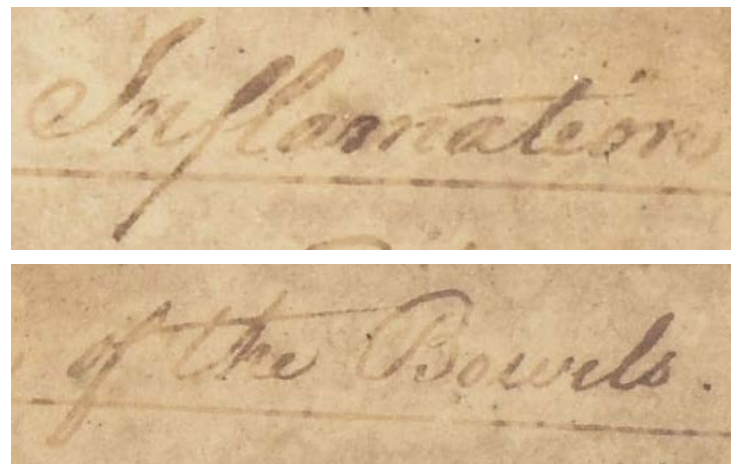 Inflamation
of the Bowels.